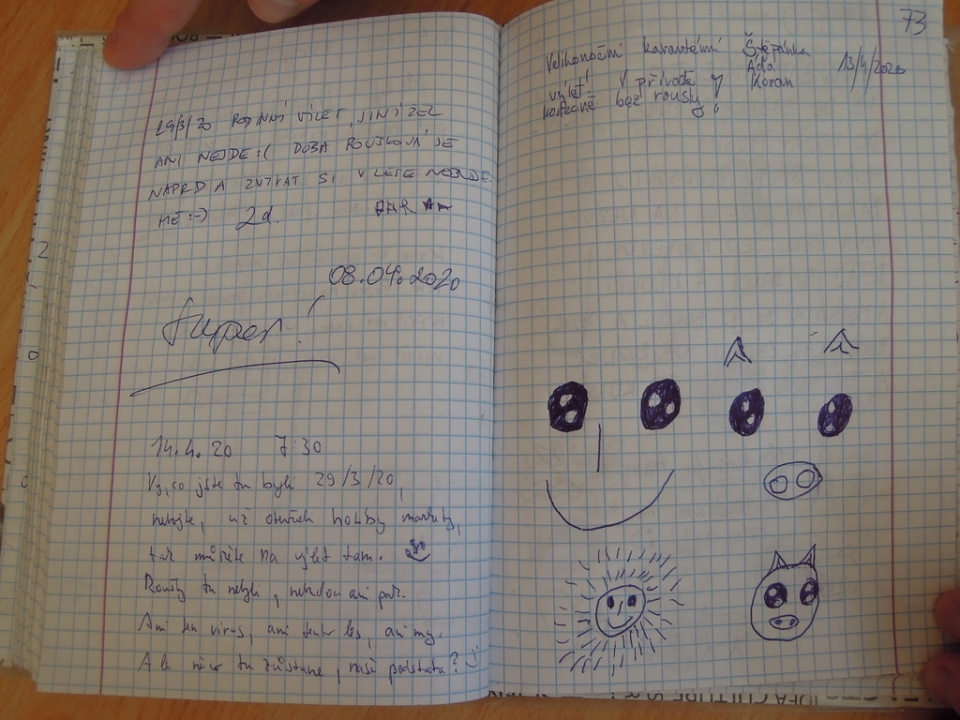 29/3/20 RODINNÝ VÝLET, JINÝ ZEL
ANI NEJDE :( DOBA ROUŠKOVÁ JE
NAPRD A ZVYKAT SI V LESE NEBUDE
ME :-) 2d.
08.04.2020
Super!
14.4.20 7:30
Vy, co jste tu byli 29/3/20,
nebojte, už otevřeli hobby markety,
tak můžete na výlet tam.
Roušky tu nebyly, nebudou ani pak.
Ani ten virus, ani tenhle les, ani my.
Ale něco tu zůstane, naše podstata?
73
Velikonoční karanténní Štěpánka
Áďa 13/4/2020
výlet! V přírodě Koran
konečně bez roušky!
2
0